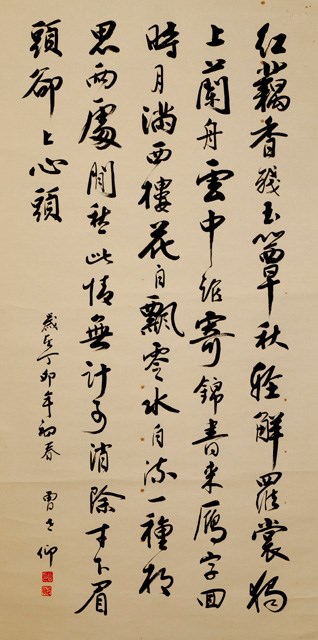 红藕香残玉簟秋轻解羅裳獨
上蘭舟雲中誰寄錦書来鴈字回
時月滿西樓花自飄零水自流一種相
思两處閒愁此情無計可消除才下眉
頭卻上心頭
歲在丁卯年初春 曹